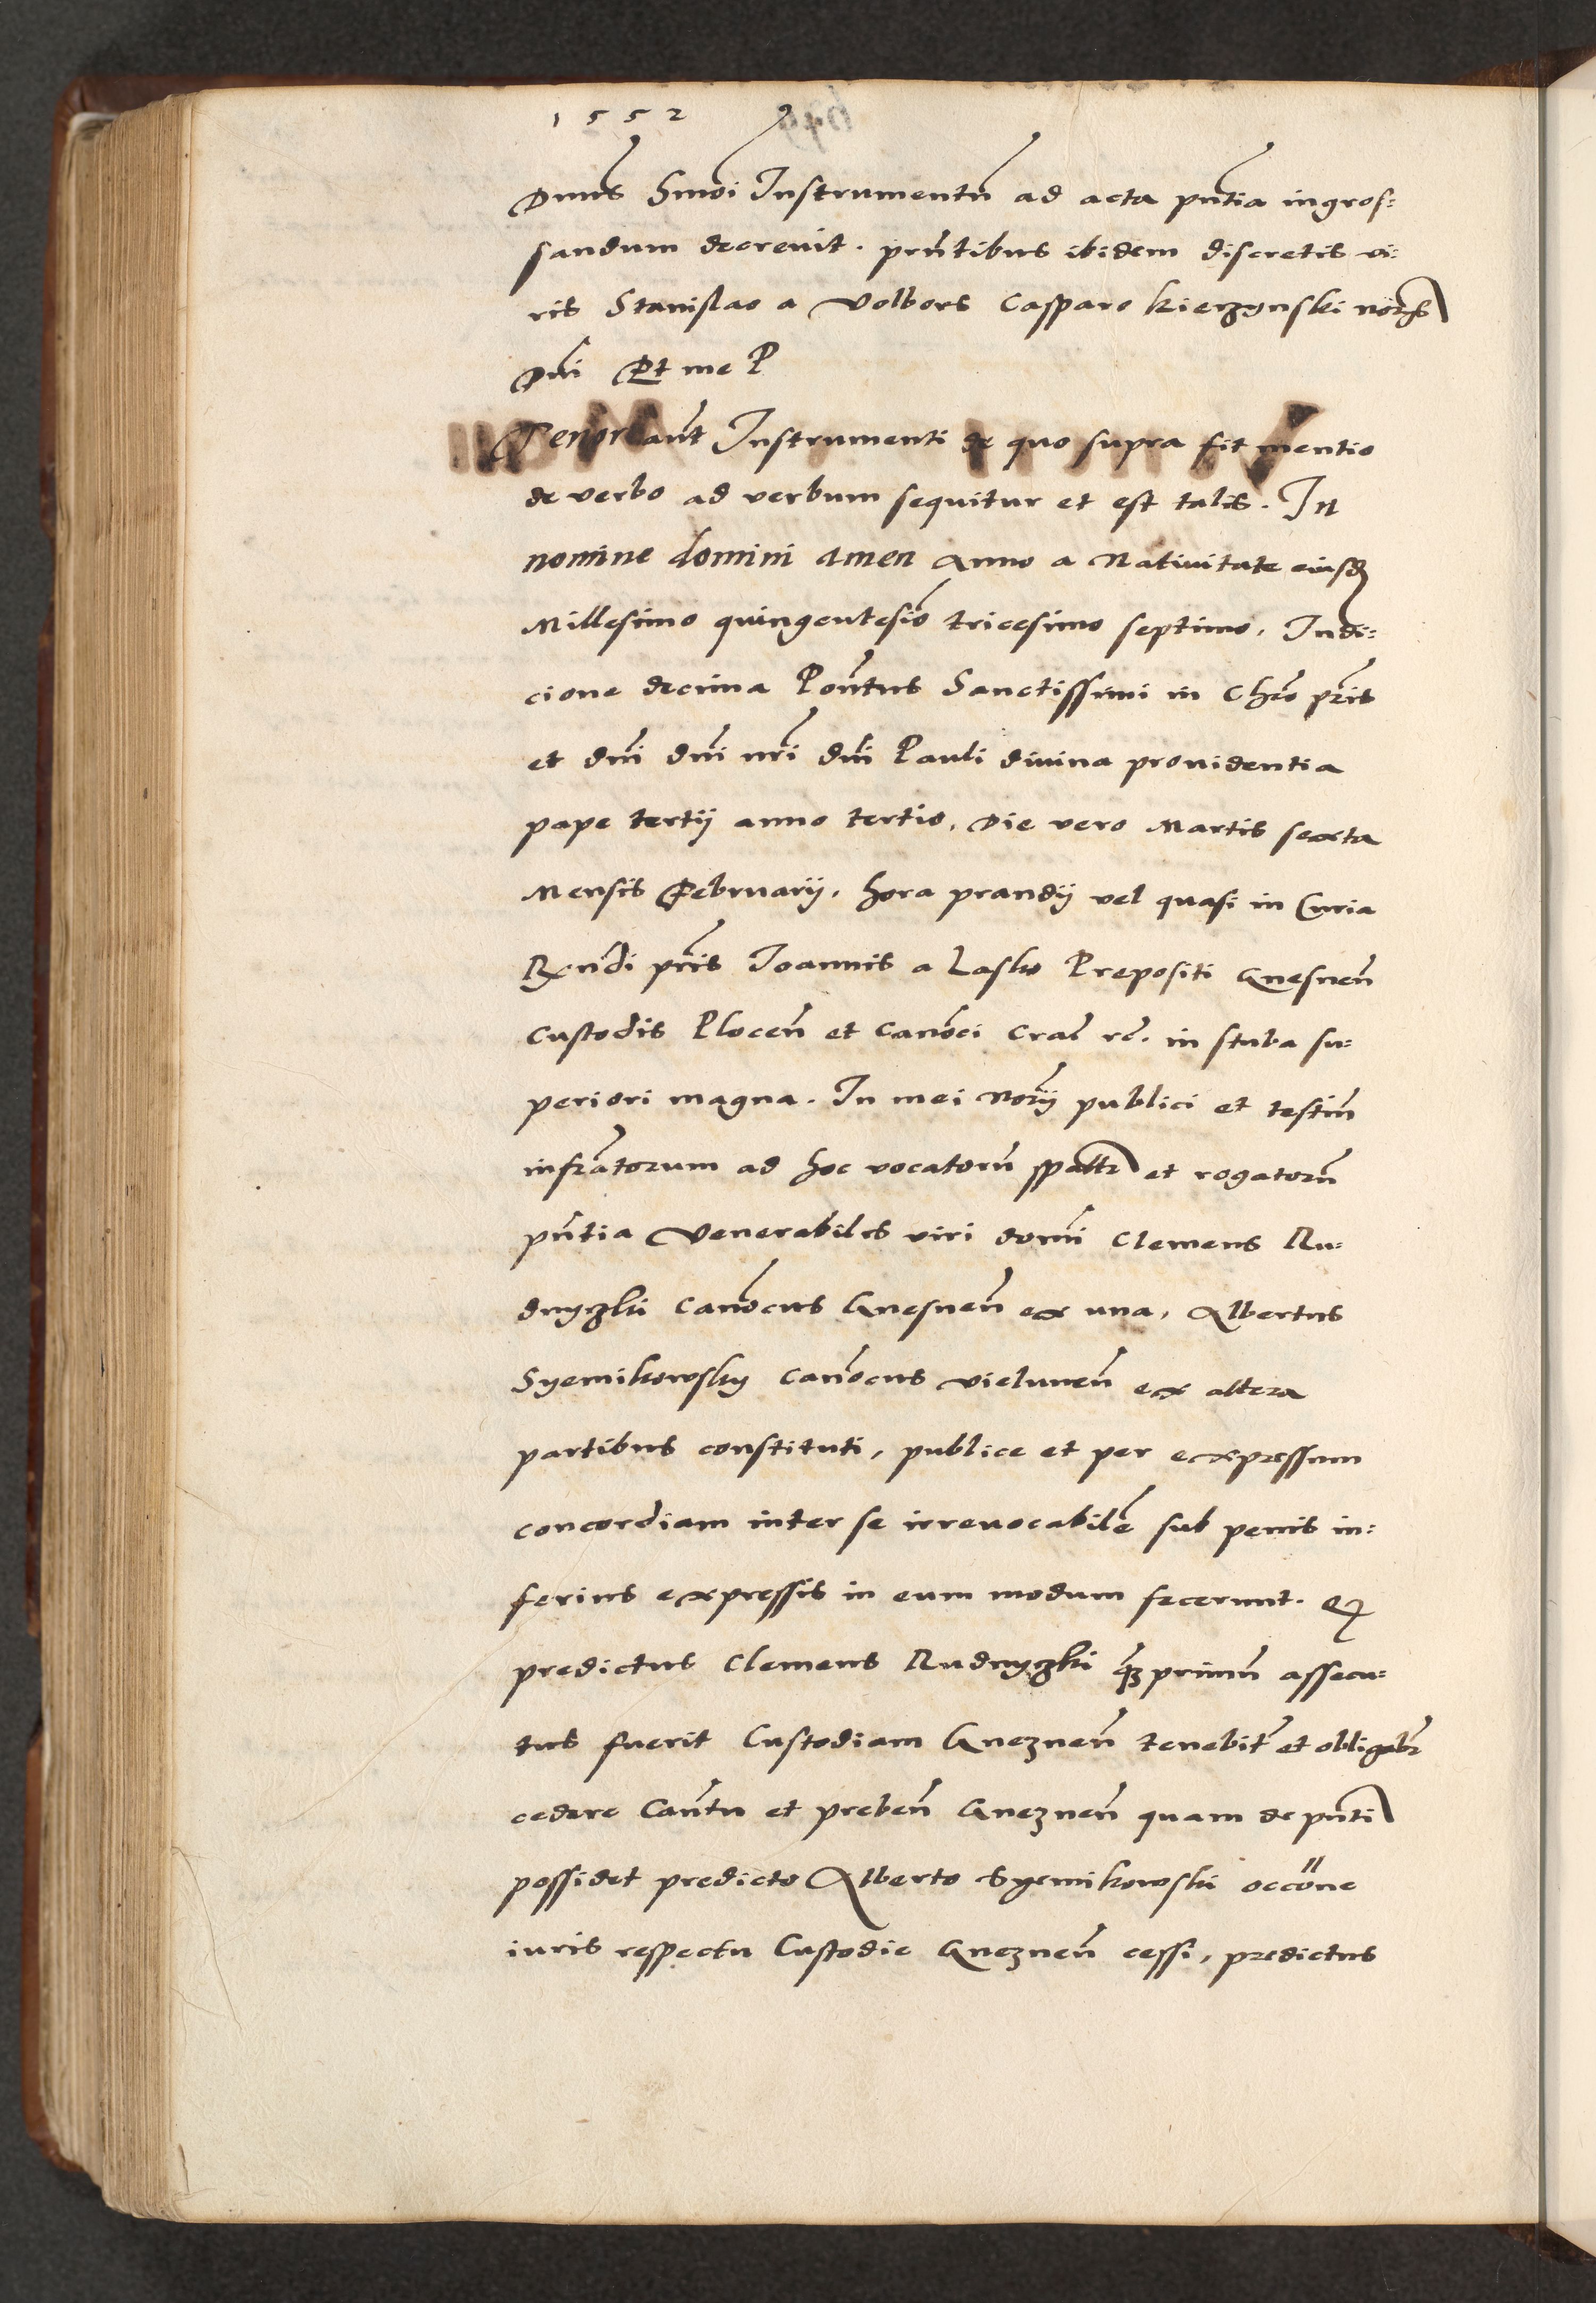 1552
Dnus hmoi Instrumentū ad acta pn̄tia ingros:
sandum decrevit. prn̄tibus ibidem discretis vi:
ris Stanislao a Volbors Casparo Kierzynski
Dni Et me P
Tenor aūt Instrumenti de quo supra fit mentio
de verbo ad verbum sequitur et est talis. In
nomine domini amen Anno a Nativitate eiusd
Millesimo quingentesīo tricesimo septimo, Indi:
cione decima Pontus Sanctissimi in Chro pris
et dni dni nri dni Pauli divina providentia
pape tertij anno tertio, Die vero Martis sexta
Mensis Februarij, hora prandij vel quasi in Curia
Rendi pris Joannis a Lasko Prepositi Gnesnen̄
Custodis Plocen̄ et Canoci Crac̄ rc. in stuba su:
periori magna. In mei norij publici et testiū
infrātorum ad hoc vocatorū et rogatorū
pn̄tia Venerabiles viri domi Clemens Ru:
dnyzki Canōcus Gnesnen̄ ex una, Albertus
Syemikowsky Canōcus vielunen̄ ex altera
partibus constituti, publice et per expressum
concordiam inter se irrevocabilē sub penis in:
ferius expressis in eum modum fecerunt. Q
predictus Clemens Rudnyzki q̄z primū assecu:
tus fuerit Custodiam Gneznen̄ tenebit̄ et obligabr̄
cedere Can̄tu et preben̄ Gneznen̄ quam de pn̄ti
possidet predicto Alberto Syemikowski occōne
iuris respectu Custodie Gneznen̄ cessi, predictus